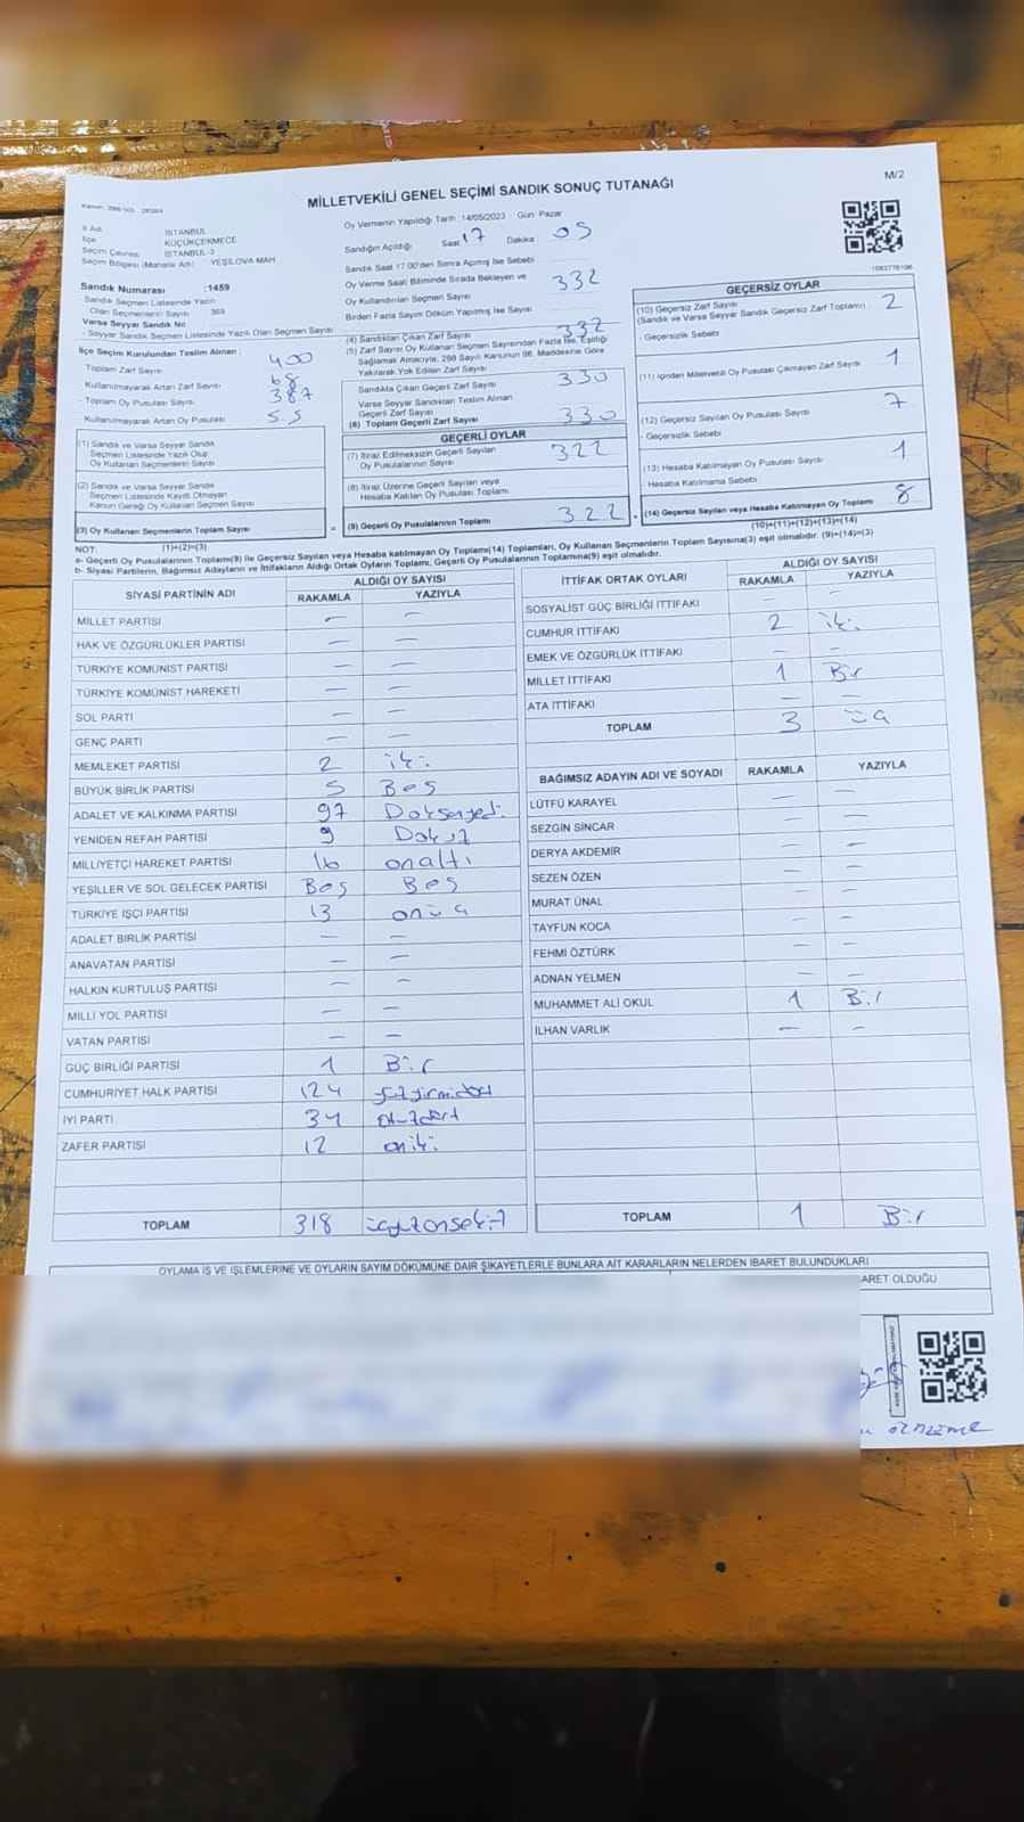 M/2
MİLLETVEKİLİ GENEL SEÇİMİ SANDIK SONUÇ TUTANAĞI
Oy Vermenin Yapıldığı Tarih : 14/05/2023 Gün: Pazar
İl Adı İSTANBUL
İlçe KÜÇÜKÇEKMECE
Seçim Çevresi İSTANBUL-3
Seçim Bölgesi (Mahalle Adı) YEŞİLOVA MAH.
Sandığın Açıldığı Saat 17 Dakika 05
Sandık Saat 17.00'den Sonra Açılmış İse Sebebi
Oy Verme Saati Bitiminde Sırada Bekleyen ve
Oy Kullandırılan Seçmen Sayısı 332
Birden Fazla Sayım Döküm Yapılmış İse Sayısı
Sandık Numarası :1459
Sandık Seçmen Listesinde Yazılı
Olan Seçmenlerin Sayısı 369
Varsa Seyyar Sandık No
- Seyyar Sandık Seçmen Listesinde Yazılı Olan Seçmen Sayısı
İlçe Seçim Kurulundan Teslim Alınan :
Toplam Zarf Sayısı 400
Kullanılmayarak Artan Zarf Sayısı 68
- Toplam Oy Pusulası Sayısı 387
Kullanılmayarak Artan Oy Pusulası 55
(1) Sandık ve Varsa Seyyar Sandık
Seçmen Listesinde Yazılı Olup
Oy Kullanan Seçmenlerin Sayısı
(2) Sandık ve Varsa Seyyar Sandık
Seçmen Listesinde Kayıtlı Olmayan
Kanun Gereği Oy Kullanan Seçmen Sayısı
(3) Oy Kullanan Seçmenlerin Toplam Sayısı
(1)+(2)=(3)
(4) Sandıktan Çıkan Zarf Sayısı 332
(5) Zarf Sayısı Oy Kullanan Seçmen Sayısından Fazla İse, Eşitliği
Sağlamak Amacıyla, 298 Sayılı Kanunun 98. Maddesine Göre
Yakılarak Yok Edilen Zarf Sayısı
Sandıkta Çıkan Geçerli Zarf Sayısı 330
Varsa Seyyar Sandıktan Teslim Alınan
Geçerli Zarf Sayısı
(6) Toplam Geçerli Zarf Sayısı 330
GEÇERLİ OYLAR
(7) İtiraz Edilmeksizin Geçerli Sayılan
Oy Pusulalarının Sayısı 322
(8) İtiraz Üzerine Geçerli Sayılan veya
Hesaba Katılan Oy Pusulası Toplamı
(9) Geçerli Oy Pusulalarının Toplamı 322
GEÇERSİZ OYLAR
(10) Geçersiz Zarf Sayısı
(Sandık ve Varsa Seyyar Sandık Geçersiz Zarf Toplamı) 2
- Geçersizlik Sebebi
(11) İçinden Milletvekili Oy Pusulası Çıkmayan Zarf Sayısı 1
(12) Geçersiz Sayılan Oy Pusulası Sayısı 7
- Geçersizlik Sebebi
(13) Hesaba Katılmayan Oy Pusulası Sayısı 1
- Hesaba Katılmama Sebebi
(14) Geçersiz Sayılan veya Hesaba Katılmayan Oy Toplamı 8
(10)+(11)+(12)+(13)=(14)
NOT:
a- Geçerli Oy Pusulalarının Toplamı(9) ile Geçersiz Sayılan veya Hesaba katılmayan Oy Toplamı(14) Toplamları, Oy Kullanan Seçmenlerin Toplam Sayısına(3) eşit olmalıdır. (9)+(14)=(3)
b- Siyasi Partilerin, Bağımsız Adayların ve İttifakların Aldığı Ortak Oyların Toplamı, Geçerli Oy Pusulalarının Toplamına(9) eşit olmalıdır.
SİYASİ PARTİNİN ADI ALDIĞI OY SAYISI
RAKAMLA YAZIYLA
MİLLET PARTİSİ — —
HAK VE ÖZGÜRLÜKLER PARTİSİ — —
TÜRKİYE KOMÜNİST PARTİSİ — —
TÜRKİYE KOMÜNİST HAREKETİ — —
SOL PARTİ — —
GENÇ PARTİ — —
MEMLEKET PARTİSİ 2 iki
BÜYÜK BİRLİK PARTİSİ 5 Beş
ADALET VE KALKINMA PARTİSİ 97 Doksanyedi
YENİDEN REFAH PARTİSİ 9 Dokuz
MİLLİYETÇİ HAREKET PARTİSİ 16 onaltı
YEŞİLLER VE SOL GELECEK PARTİSİ Beş Beş
TÜRKİYE İŞÇİ PARTİSİ 13 onüç
ADALET BİRLİK PARTİSİ — —
ANAVATAN PARTİSİ — —
HALKIN KURTULUŞ PARTİSİ — —
MİLLİ YOL PARTİSİ — —
VATAN PARTİSİ — —
GÜÇ BİRLİĞİ PARTİSİ 1 Bir
CUMHURİYET HALK PARTİSİ 124 yüzyirmidört
İYİ PARTİ 34 otuzdört
ZAFER PARTİSİ 12 oniki
TOPLAM 318 üçyüzonsekiz
İTTİFAK ORTAK OYLARI ALDIĞI OY SAYISI
RAKAMLA YAZIYLA
SOSYALİST GÜÇ BİRLİĞİ İTTİFAKI — —
CUMHUR İTTİFAKI 2 iki
EMEK VE ÖZGÜRLÜK İTTİFAKI — —
MİLLET İTTİFAKI 1 Bir
ATA İTTİFAKI — —
TOPLAM 3 üç
BAĞIMSIZ ADAYIN ADI VE SOYADI RAKAMLA YAZIYLA
LÜTFÜ KARAYEL — —
SEZGİN SİNCAR — —
DERYA AKDEMİR — —
SEZEN ÖZEN — —
MURAT ÜNAL — —
TAYFUN KOCA — —
FEHMİ ÖZTÜRK — —
ADNAN YELMEN — —
MUHAMMET ALİ OKUL 1 Bir
İLHAN VARLIK — —
TOPLAM 1 Bir
OYLAMA İŞ VE İŞLEMLERİNE VE OYLARIN SAYIM DÖKÜMÜNE DAİR ŞİKAYETLERLE BUNLARA AİT KARARLARIN NELERDEN İBARET BULUNDUKLARI
ARET OLDUĞU